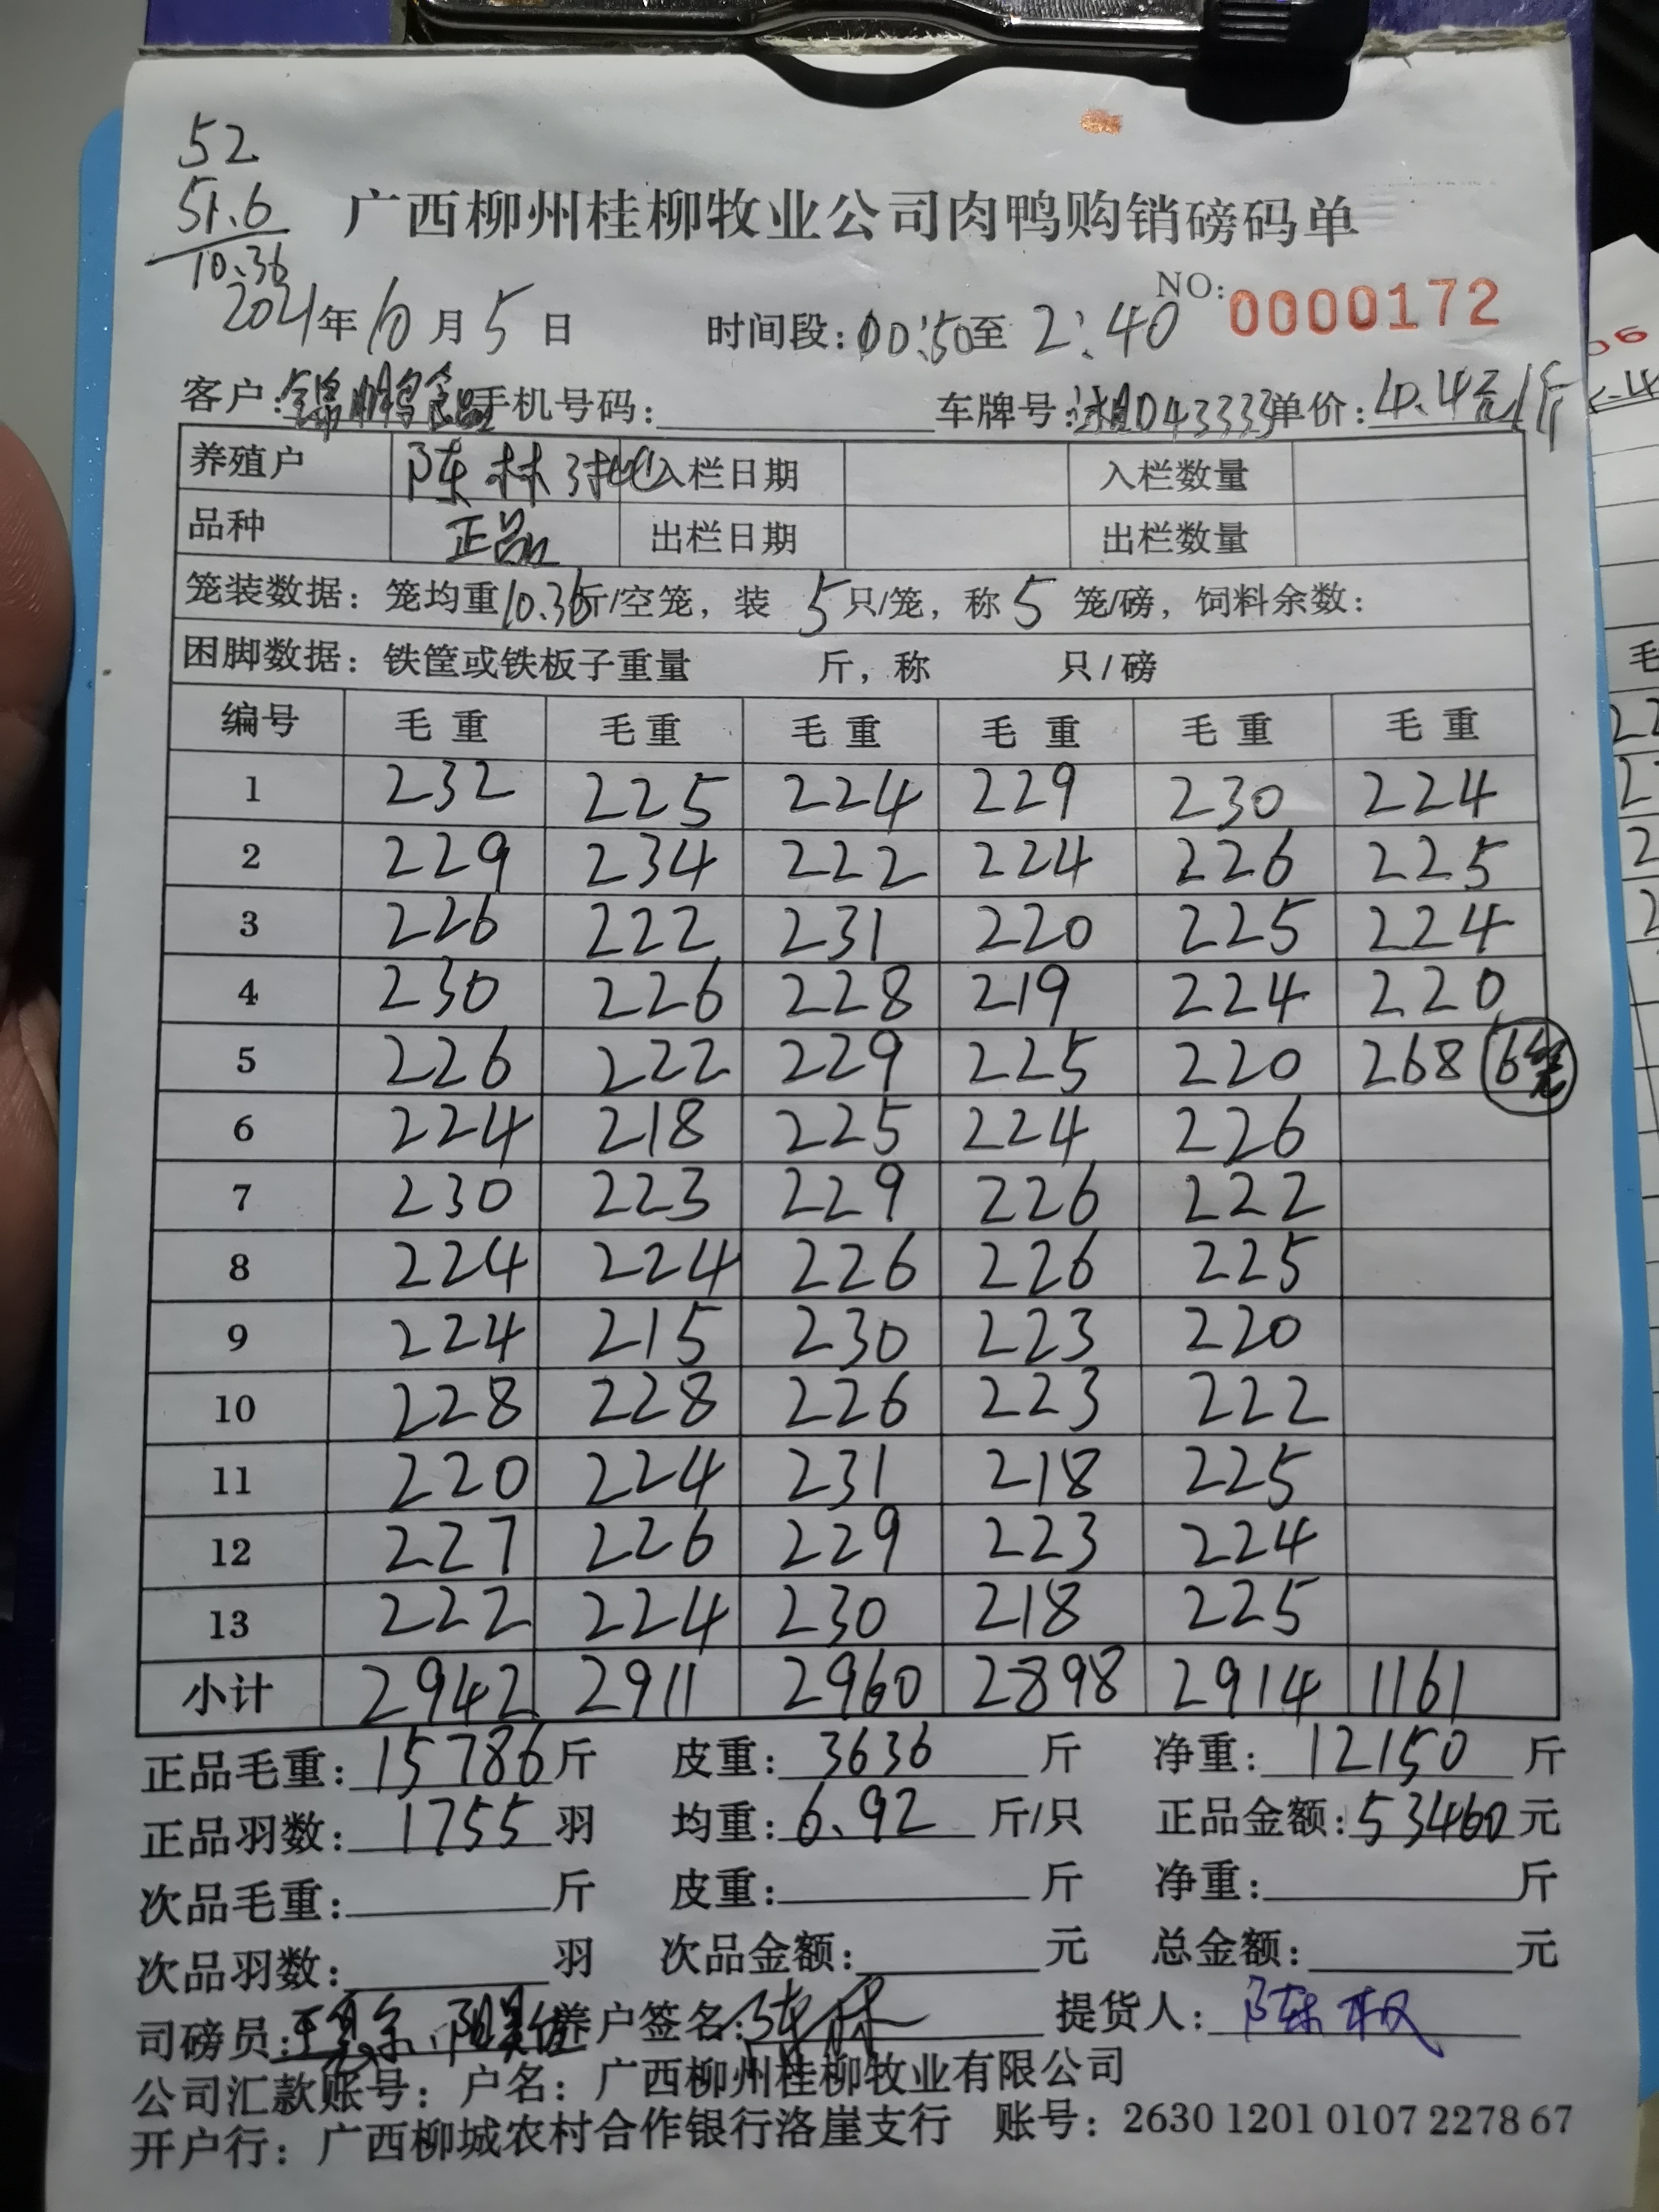 52
51.6
10.36
广西柳州桂柳牧业公司肉鸭购销磅码单
NO: 0000172
2021年10月5日 时间段:00:50至2:40
客户:锦鹏食品 手机号码: 车牌号:湘D43333 单价:4.4元/斤
养殖户 陈林 入栏日期 入栏数量
品种 正品 出栏日期 出栏数量
笼装数据:笼均重10.36斤/空笼,装 5只/笼,称5 笼/磅,饲料余数:
困脚数据:铁筐或铁板子重量 斤,称 只/磅
编号 毛重 毛重 毛重 毛重 毛重 毛重
1 232 225 224 229 230 224
2 229 234 222 224 226 225
3 226 222 231 220 225 224
4 230 226 228 219 224 220
5 226 222 229 225 220 268 6笼
6 224 218 225 224 226
7 230 223 229 226 222
8 224 224 226 226 225
9 224 215 230 223 220
10 228 228 226 223 222
11 220 224 231 218 225
12 227 226 229 223 224
13 222 224 230 218 225
小计 2942 2911 2960 2898 2914 1161
正品毛重:15786斤 皮重:3636斤 净重:12150斤
正品羽数:1755羽 均重:6.92斤/只 正品金额:53460元
次品毛重: 斤 皮重: 斤 净重: 斤
次品羽数: 羽 次品金额: 元 总金额: 元
司磅员: 养户签名:陈林 提货人:陈权
公司汇款账号:户名:广西柳州桂柳牧业有限公司
开户行:广西柳城农村合作银行洛崖支行 账号:2630 1201 0107 2278 67